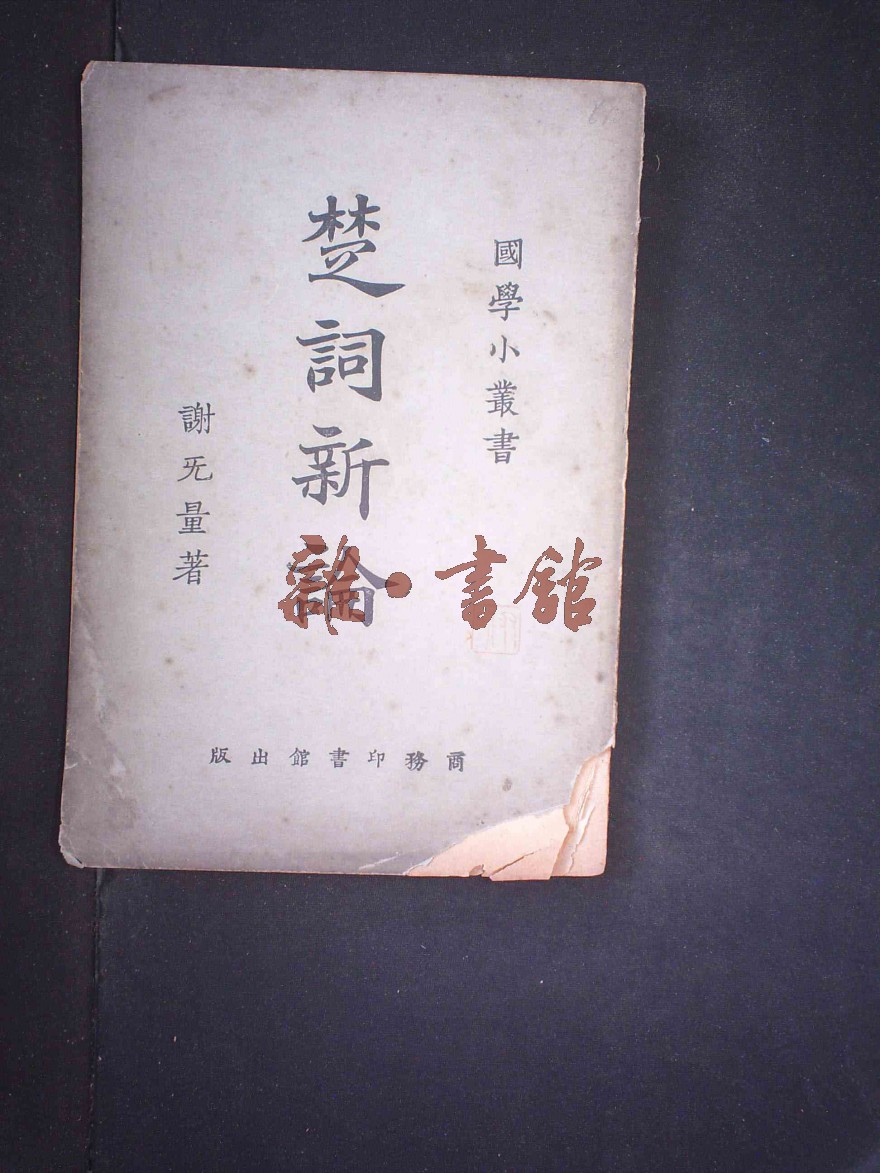 國學小叢書
楚詞新論
謝无量著
商務印書館出版
書館